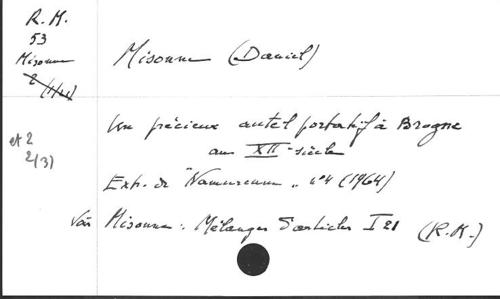 R. M.
53
Misonne
2 (1/21)
et 2
2(3)
Misonne (Daniel)
Un précieux autel portatif à Brogne
au XIIe siècle
Extr. de "Namurcum" n°4 (1964)
Voir Misonne : Mélanges d'articles I 21 (R.K.)